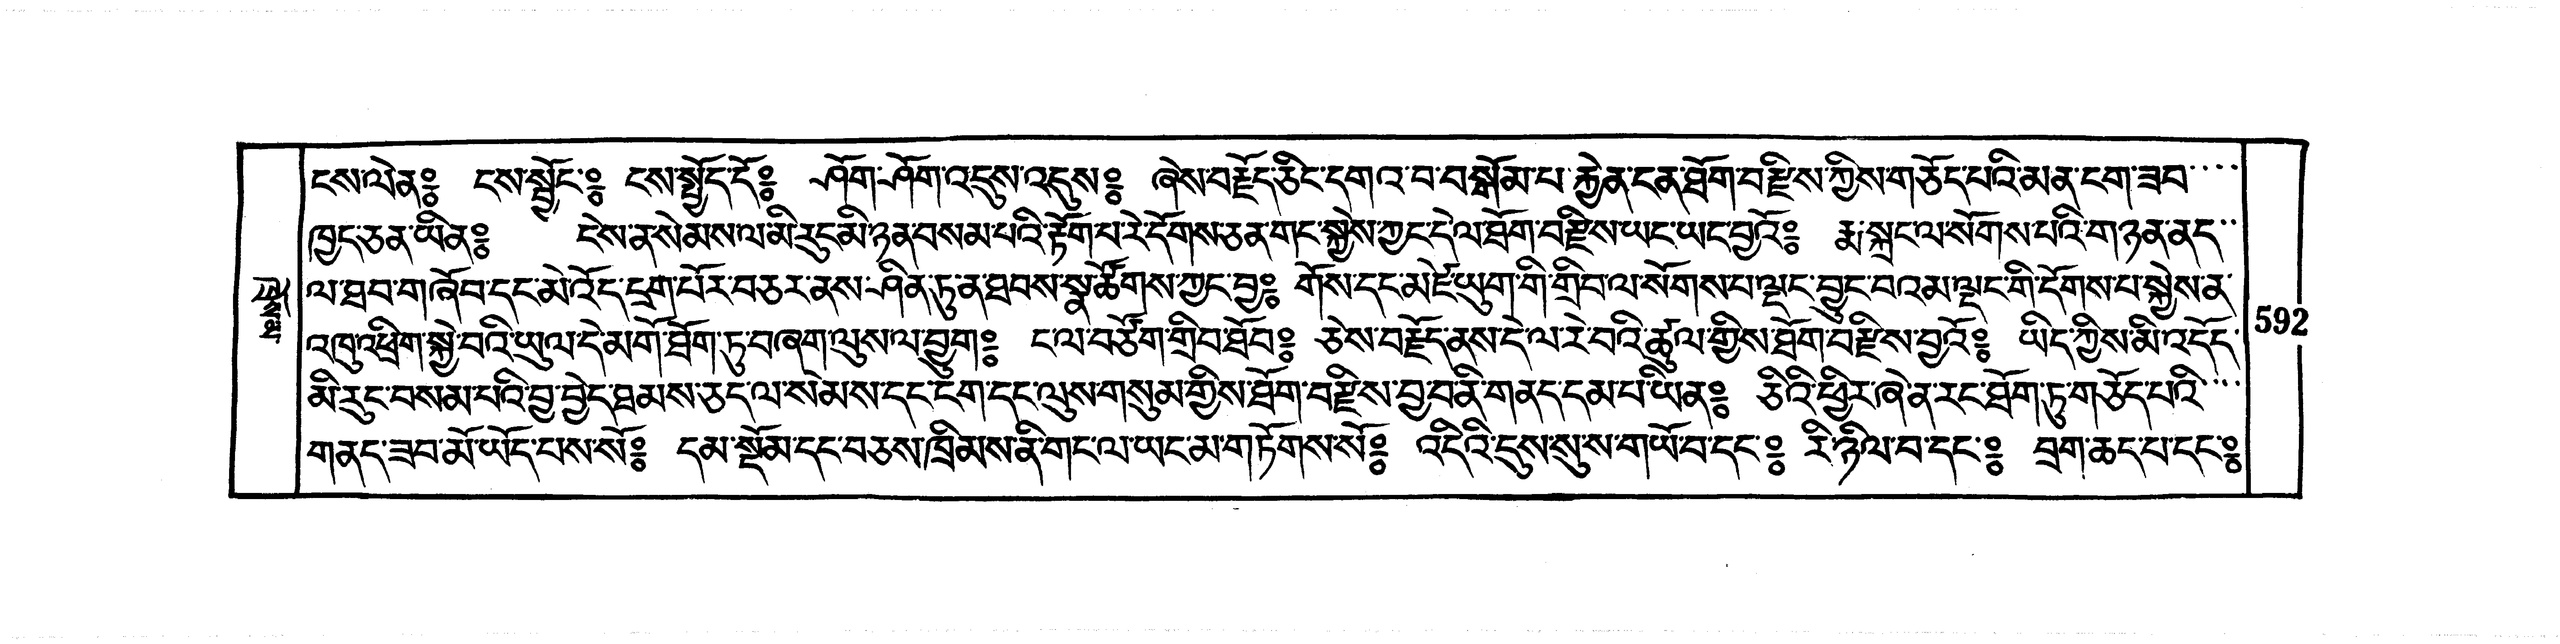 ངས་ལེན༔ ངས་སྦྱོང་༔ ངས་སྤྱོད་དོ༔ ཤོག་ཤོག་འདུས་འདུས༔ ཞེས་བརྗོད་ཅིང་དགའ་བ་བསྒོམ་པ་རྐྱེན་ངན་ཐོག་བརྫིས་ཀྱིས་གཅོད་པའི་མན་ངག་ཟབ
ཁྱད་ཅན་ཡིན༔ ངེས་ན་སེམས་ལ་མི་རུང་མི་ཉན་བསམ་པའི་རྟོག་པ་རེ་དོགས་ཅན་གང་སྐྱེས་ཀྱང་དེ་ལ་ཐོག་བརྫིས་ཡང་ཡང་བྱའོ༔ རྨ་སྐྲང་ལ་སོགས་པའི་གཉན་ནད
ལ་ཐབ་ག་ཞོབ་དང་མེ་འོད་དྲག་པོར་བཅར་ནས་ཤིན་ཏུ་ན་ཐབས་སྣ་ཚོགས་ཀྱང་བྱ༔ གོས་དང་མཛེ་ཡུག་གི་གྲིབ་ལ་སོགས་པ་ལྡང་བྱུང་བའམ་ལྡང་གི་དོགས་པ་སྐྱེས་ན
འཁུ་འཕྲིག་སྐྱེ་བའི་ཡུལ་དེ་མགོ་ཐོག་ཏུ་བཞག་ལུས་ལ་བྱུག༔ ང་ལ་བཙོག་གྲིབ་ཐོབ༔ ཅེས་བརྗོད་ནས་དེ་ལ་རེ་བའི་ཚུལ་གྱིས་ཐོག་བརྫིས་བྱའོ༔ ཡིད་ཀྱིས་མི་འདོད
མི་རུང་བསམ་པའི་བྱ་བྱེད་ཐམས་ཅད་ལ་སེམས་དང་ངག་དང་ལུས་གསུམ་གྱིས་ཐོག་བརྫིས་བྱ་བ་ནི་གནད་དམ་པ་ཡིན༔ ཅིའི་ཕྱིར་ཞེ་ན་རང་ཐོག་ཏུ་གཅོད་པའི
གནད་ཟབ་མོ་ཡོད་པས་སོ༔ དམ་སྡོམ་དང་བཅས་ཁྲིམས་ནི་གང་ལ་ཡང་མ་གཏོགས་སོ༔ འདིའི་དུས་སུ་ས་གཡོ་བ་དང་༔ རི་ཉིལ་བ་དང་༔ བྲག་ཆད་པ་དང་༔
592